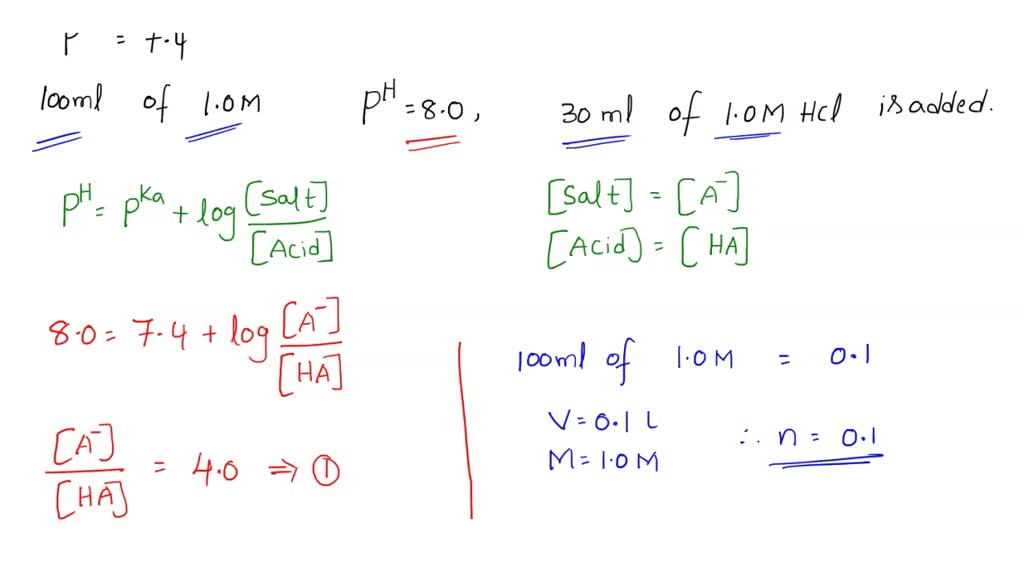 = 7.4
100ml of 1.0M pH = 8.0, 30 ml of 1.0M Hcl is added.
pH = pKa + log [Salt] / [Acid]
[Salt] = [A⁻]
[Acid) = [HA]
8.0 = 7.4 + log [A⁻] / [HA]
[A⁻] / [HA] = 4.0 ⇒ ①
100ml of 1.0M = 0.1
V = 0.1 L
M = 1.0M
∴ n = 0.1